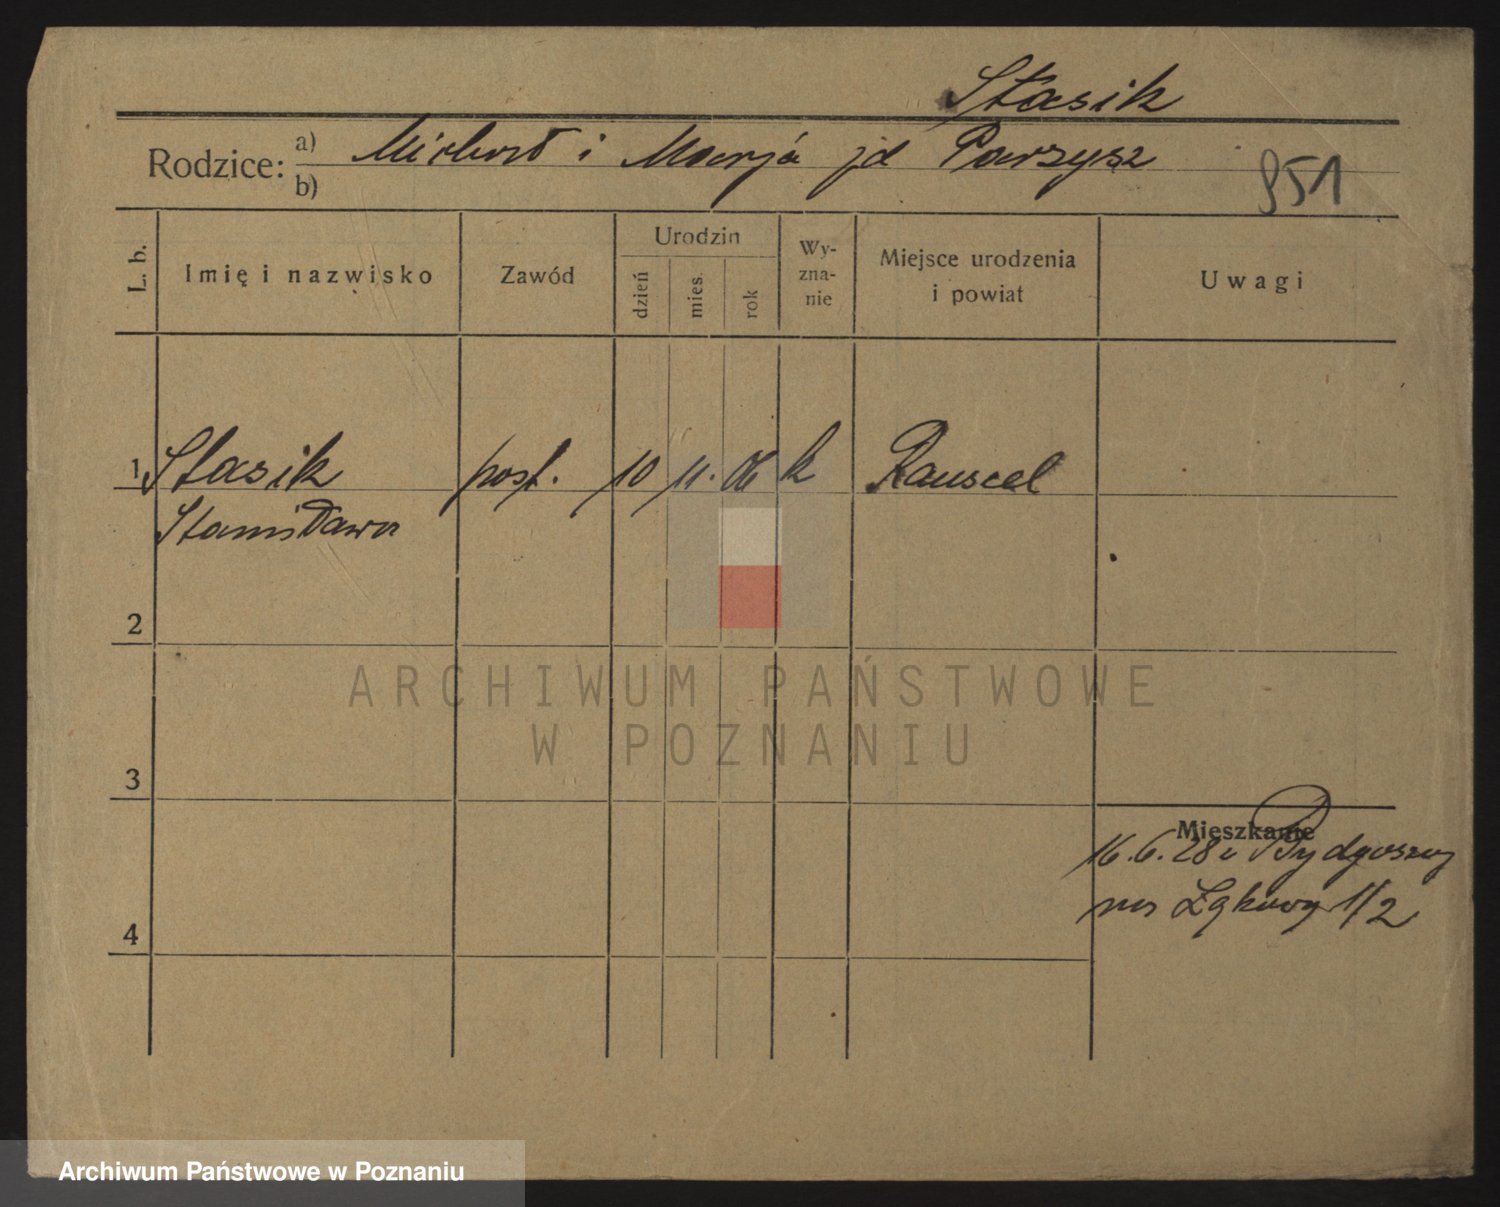 Stasik
Rodzice: a) Michał i Marja jd Parzysz
b)
951
L. b.
Imię i nazwisko
Zawód
Urodzin
dzień
mies.
rok
Wy-
zna-
nie
Miejsce urodzenia
i powiat
Uwagi
1 Stasik post. 10 11. 06 k Rauscel
Stanisława
2
3
4
Mieszkanie
16.6.28 z Bydgoszczy
na Łąkowa 1/2
ARCHIWUM PAŃSTWOWE
W POZNANIU
Archiwum Państwowe w Poznaniu